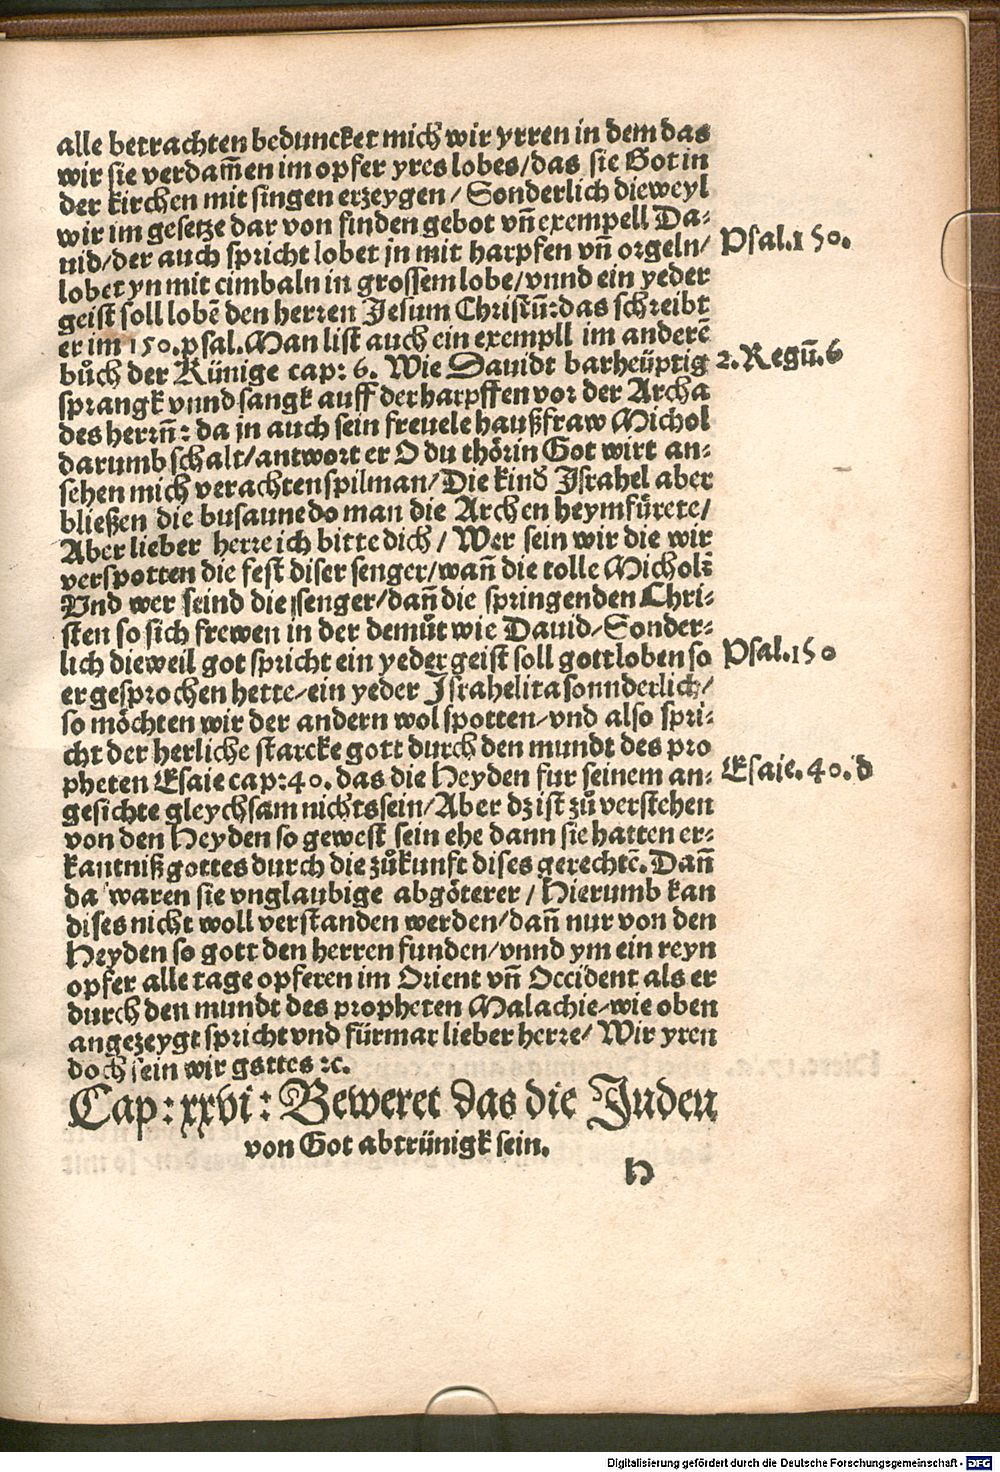 alle betrachten beduncket mich wir yrren in dem das
wir sie verdam̃en im opfer yres lobes/das sie Got in
der kirchen mit singen erzeygen/ Sonderlich dieweyl
wir im gesetze dar von finden gebot vñ exempell Da⸗
uid/der auch spricht lobet jn mit harpfen vñ orgeln/
Psal.150.
lobet yn mit cimbaln in grossem lobe/vnnd ein yeder
geist soll lobẽ den herren Jesum Christũ:das schreibt
er im 150.psal.Man list auch ein exempll im anderẽ
bůch der Künige cap: 6. Wie Dauidt barheüptig
2.Regũ.6
sprangk vnnd sangk auff der harpffen vor der Archa
des herrñ: da jn auch sein freuele haußfraw Michol
darumb schalt/antwort er O du thörin Got wirt an⸗
sehen mich verachten spilman/Die kind Jsrahel aber
bließen die busaune do man die Archen heymfürete/
Aber lieber herre ich bitte dich/ Wer sein wir die wir
verspotten die fest diser senger/wañ die tolle Michol:
Vnd wer seind die senger/dañ die springenden Chri⸗
sten so sich frewen in der demůt wie Dauid/Sonder⸗
lich dieweil got spricht ein yeder geist soll gott loben so
Psal.150
er gesprochen hette/ein yeder Jsrahelita sonnderlich/
so möchten wir der andern wol spotten/vnd also spri⸗
cht der herliche starcke gott durch den mundt des pro
pheten Esaie cap:40. das die Heyden fur seinem an⸗
Esaie.40.d
gesichte gleychsam nichts sein/Aber dz ist zů verstehen
von den Heyden so gewest sein ehe dann sie hatten er⸗
kantniß gottes durch die zůkunft dises gerechtẽ.Dañ
da waren sie vnglaubige abgöterer/Hierumb kan
dises nicht woll verstanden werden/dañ nur von den
Heyden so gott den herren funden/vnnd ym ein reyn
opfer alle tage opferen im Orient vñ Occident als er
durch den mundt des propheten Malachie/wie oben
angezeygt spricht vnd fürmar lieber herre/ Wir yren
doch sein wir gottes ꝛc.
Cap:xxvi: Beweret das die Juden
von Got abtrünigk sein.
H
Digitalisierung gefördert durch die Deutsche Forschungsgemeinschaft - DFG